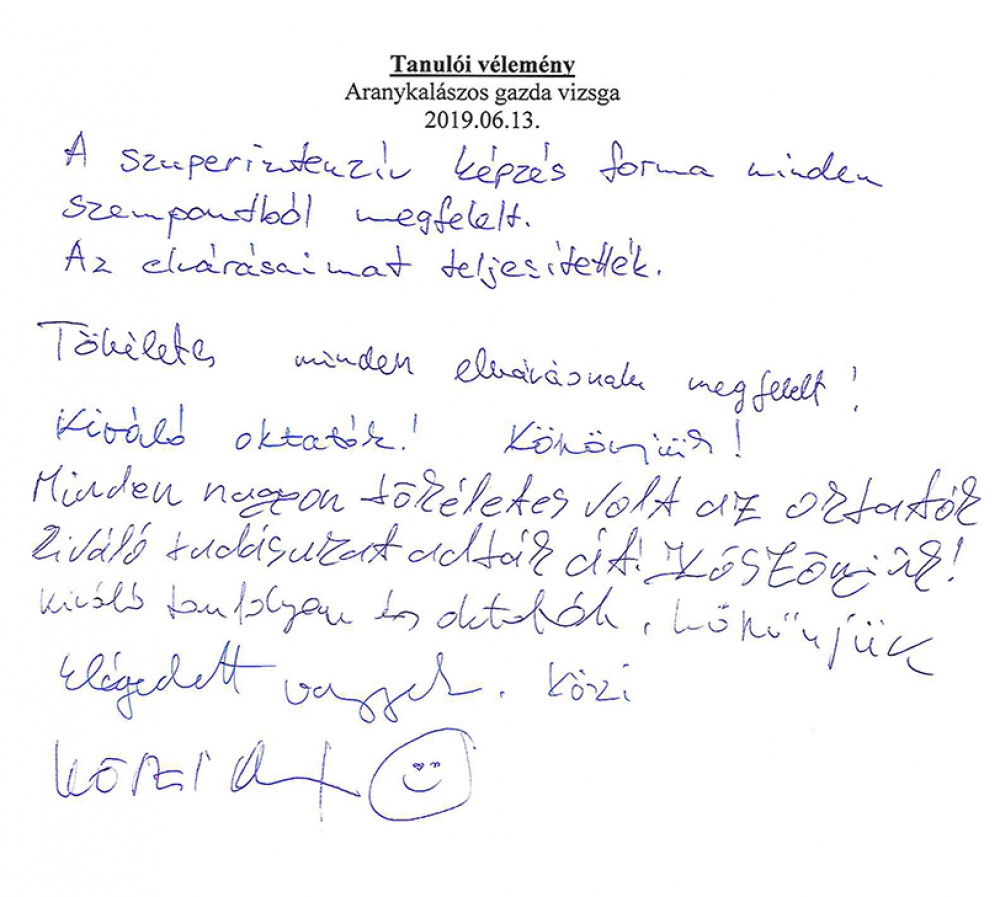 Tanulói vélemény
Aranykalászos gazda vizsga
2019.06.13.
A szuperintenzív képzés forma minden
szempontból megfelelt.
Az elvárásaimat teljesítették.
Tökéletes minden elvárásnak megfelelt!
Kiváló oktatók! Köszönjük!
Minden nagyon tökéletes volt az oktatók
kiváló tudásukat adták át! Köszönjük!
Kiváló tanfolyam és oktatók, köszönjük
Elégedett vagyok. Köszi
KÖSZI